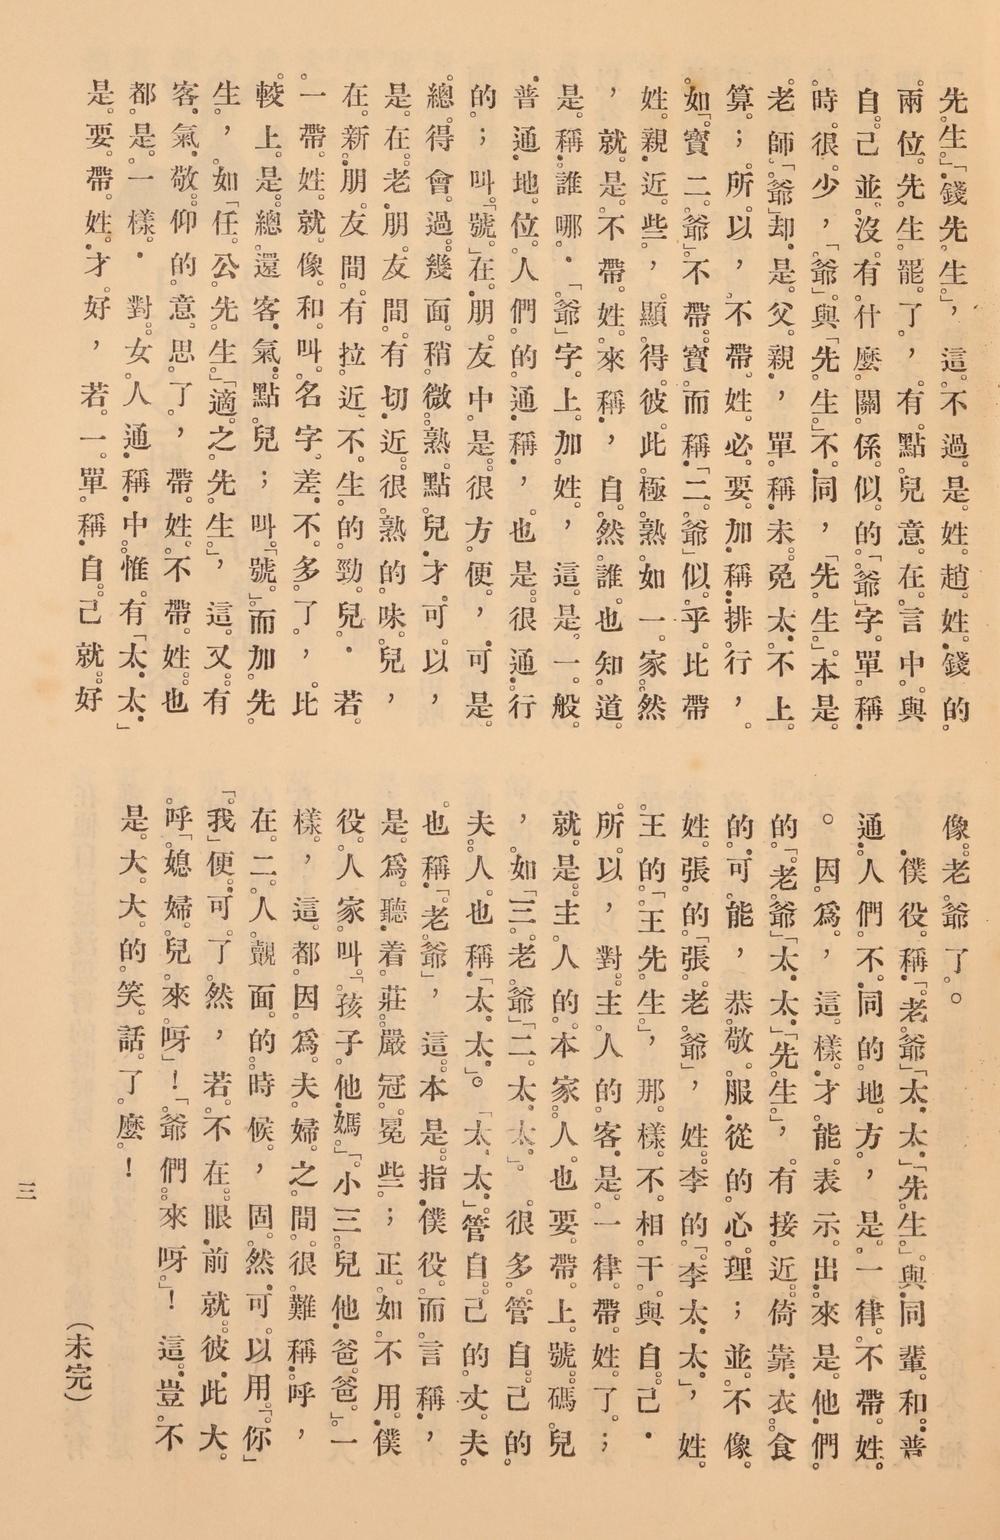 先生」「錢先生」，這不過是姓趙姓錢的
兩位先生罷了，有點兒意在言中與
自己並沒有什麼關係似的「爺」字單稱
時很少，「爺」與「先生」不同，「先生」本是
老師「爺」却是父親，單稱未免太不上
算；所以，不帶姓必要加稱排行，
如「寶二爺」不帶寶而稱「二爺」似乎比帶
姓親近些，顯得彼此極熟如一家然
，就是不帶姓來稱，自然誰也知道
是稱誰哪．「爺」字上加姓，這是一般
普通地位人們的通稱，也是很通行
的；叫「號」在朋友中是很方便，可是
總得會過幾面稍微熟點兒才可以，
是在老朋友間有切近很熟的味兒，
在新朋友間有拉近不生的勁兒．若
一帶姓就像和叫名字差不多了，比
較上是總還客氣點兒；叫「號」而加先
生，如「任公先生」「適之先生」，這又有
客氣敬仰的意思了，帶姓不帶姓也
都是一樣．對女人通稱中惟有「太太」
是要帶姓才好，若一單稱自己就好
像老爺了。
僕役稱「老爺」「太太」「先生」與同輩和普
通人們不同的地方，是一律不帶姓
。因爲，這樣才能表示出來是他們
的「老爺」「太太」「先生」，有接近倚靠衣食
的可能，恭敬服從的心理；並不像
姓張的「張老爺」，姓李的「李太太」，姓
王的「王先生」，那樣不相干與自己．
所以，對主人的客是一律帶姓了；
就是主人的本家人也要帶上號碼兒
，如「三老爺」「二太太」。很多管自己的
夫人也稱「太太」。「太太」管自己的丈夫
也稱「老爺」，這本是指僕役而言稱，
是爲聽着莊嚴冠冕些；正如不用僕
役人家叫「孩子他媽」「小三兒他爸爸」一
樣，這都因爲夫婦之間很難稱呼，
在二人覿面的時候，固然可以用「你」
「我」便可了然，若不在眼前就彼此大
呼「媳婦兒來呀」！「爺們來呀」！這豈不
是大大的笑話了麼！
（未完）
三